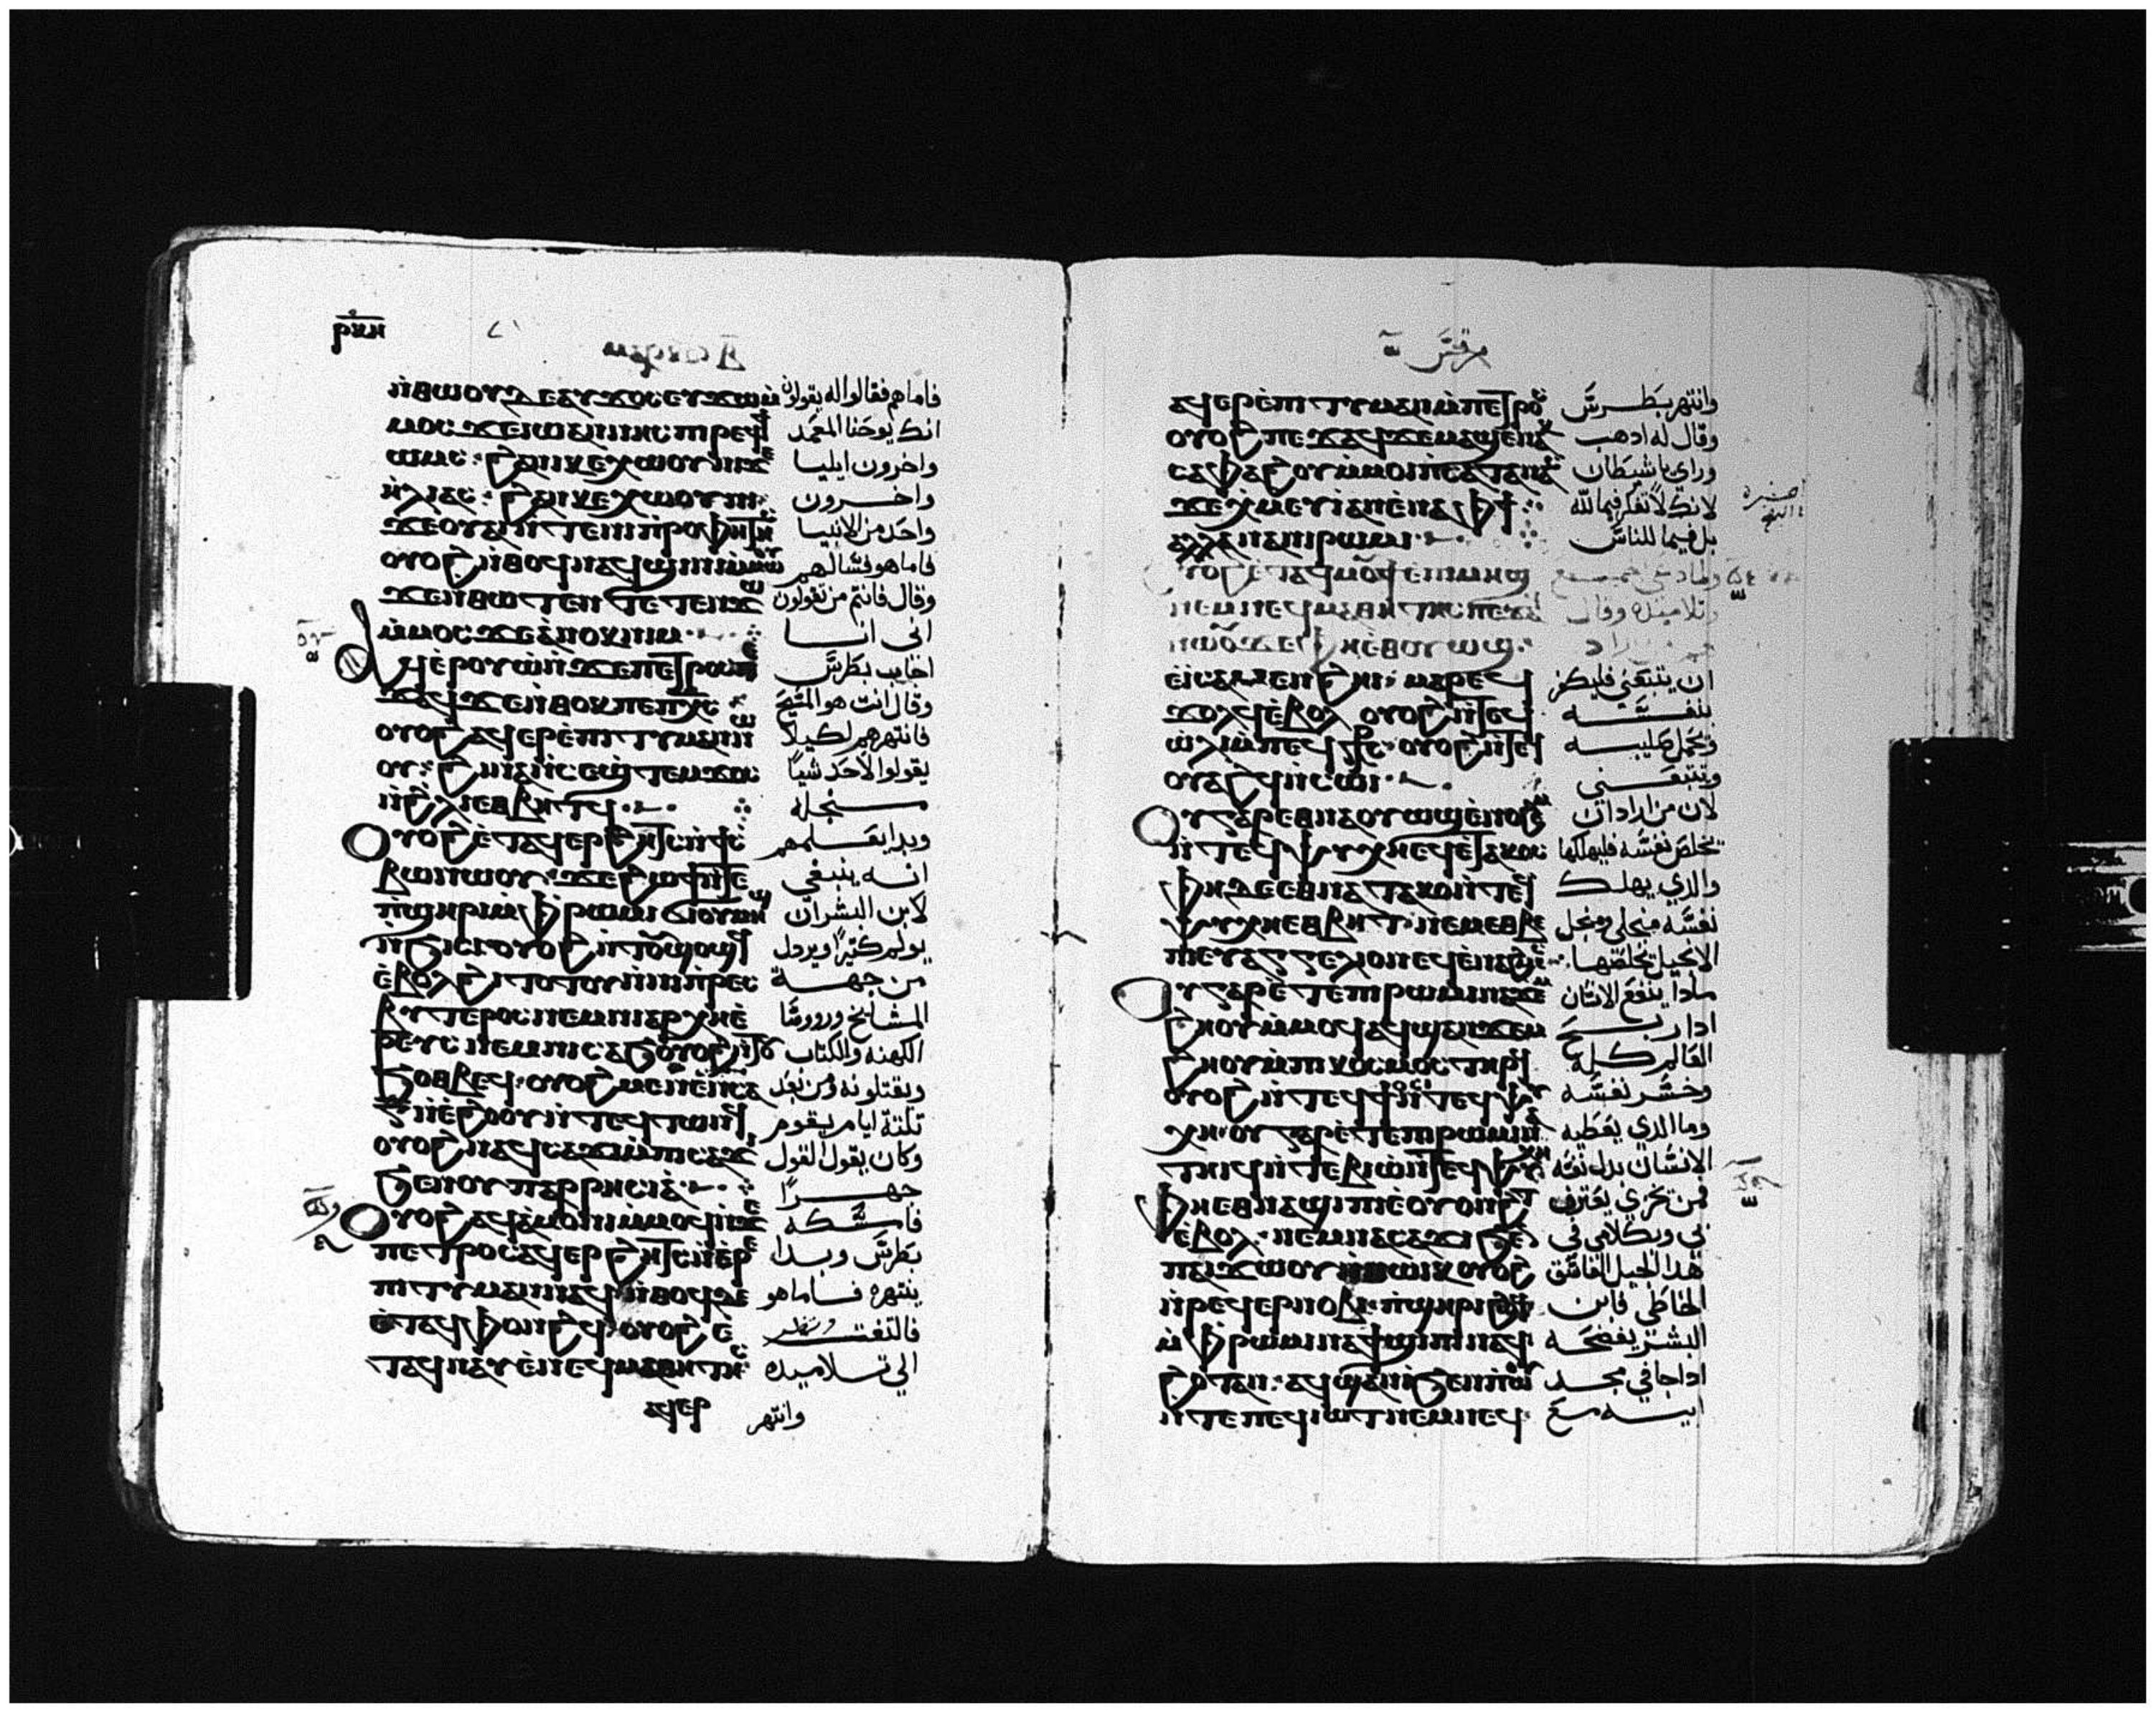 ⲣⲕⲏ
ⲛ̀ⲑⲱⲟⲩ ⲇⲉ ⲁⲩϫⲟⲥ ⲉⲩϫⲱ
فاماهم فقالوا له يقولون
ⲙⲟⲥ ϫⲉ ⲓⲱⲁⲛⲛⲏⲥ ⲡⲓⲣⲉϥϯ
انك يوحنا المعمد
ⲱⲙⲥ ϩⲁⲛⲕⲉⲭⲱⲟⲩⲛⲓ ϫⲉ
واخرون ايليا
ⲏⲗⲓⲁⲥ ϩⲁⲛⲕⲉⲭⲱⲟⲩⲛⲓ
واخرون
ϫⲉ ⲟⲩⲁⲓ ⲛ̀ⲧⲉ ⲛⲓⲡⲣⲟⲫⲏⲧⲏⲥ
واحد من الانبيا
ⲟⲩⲟϩ ⲛ̀ⲑⲟϥ ⲛⲁϥϣⲓⲛⲓ ⲙ̀ⲙⲱⲟⲩ
فاما هو فسالهم
ϫⲉ ⲛ̀ⲑⲱⲧⲉⲛ ⲧⲉⲧⲉⲛϫⲱ
وقال فانتم من تقولون
ⲙ̀ⲙⲟⲥ ϫⲉ ⲁⲛⲟⲕ ⲛⲓⲙ
انى انا
ⲁϥⲉⲣⲟⲩⲱ ⲛ̀ϫⲉ ⲡⲉⲧⲣⲟⲥ ⲡⲉ
اجاب بطرس
ϫⲁϥ ϫⲉ ⲛ̀ⲑⲟⲕ ⲡⲉ ⲡⲭⲥ
وقال انت هو المسيح
ⲟⲩⲟϩ ⲁϥⲉⲣⲉ̀ⲡⲓⲧⲓⲙⲁⲛ ⲛⲱ
فانتهرهم لكيلا
ⲟⲩ ϩⲓⲛⲁ ⲛ̀ⲥⲉϣⲧⲉⲙϫⲟⲥ
يقولوا لاحد شيا
ⲛ̀ϩⲗⲓ ⲉⲑⲃⲏⲧϥ
من جله
ⲟⲩⲟϩ ⲉⲧⲁϥⲉⲣϩⲏⲧⲥ ⲛ̀ϯⲥ
وبدا يعلمهم
ⲃⲱ ⲛⲱⲟⲩ ϫⲉ ϩⲱϯ ⲛ̀ⲧⲉ
انه ينبغى
ⲡ̀ϣⲏⲣⲓ ⲙ̀ⲫⲣⲱⲙⲓ ϭⲓ ⲟⲩⲙⲏϣ
لابن البشر ان
ⲛ̀ϧⲓⲥⲓ ⲟⲩⲟϩ ⲛ̀ⲧⲟⲩϣⲟϣϥ
يولم كتيرا ويردل
ⲉ̀ⲃⲟⲗ ϩⲓⲧⲟⲧⲟⲩ ⲛ̀ⲛⲓⲡⲣⲉⲥ
من جهة
ⲃⲩⲧⲉⲣⲟⲥ ⲛⲉⲙ ⲛⲓⲁⲣⲭⲏⲉ̀
المشايخ ورووسا
ⲣⲉⲩⲥ ⲛⲉⲙ ⲛⲓⲥⲁϧ ⲟⲩⲟϩ ⲛ̀ⲧⲟⲩ
الكهنه والكتاب
ϧⲟⲑⲃⲉϥ ⲟⲩⲟϩ ⲙⲉⲛⲉⲛⲥⲁ
ويقتلونه ومن بعد
ⲅ̅ ⲛ̀ⲉ̀ϩⲟⲟⲩ ⲛ̀ⲧⲉϥⲧⲱⲛϥ
تلتة ايام يقوم
ⲟⲩⲟϩ ⲛⲁϥⲥⲁϫⲓ ⲙ̀ⲡⲓⲥⲁϫⲓ
وكان يقول القول
ϧⲉⲛ ⲟⲩⲡⲁⲣⲣⲏⲥⲓⲁ̀
جهرًا
ⲟⲩⲟϩ ⲁϥⲁⲙⲟⲛⲓ ⲙ̀ⲙⲟϥ ⲛ̀ϫⲉ
فامسكه
ⲡⲉⲧⲣⲟⲥ ⲁϥⲉⲣϩⲏⲧⲥ ⲛ̀ⲉⲣⲉ̀
بطرس وبدا
ⲡⲓⲧⲓⲙⲁⲛ ⲛⲁϥ ⲛ̀ⲑⲟϥ ⲇⲉ
ينتهره فاما هو
ⲉ̀ⲧⲁϥⲫⲟⲛϩϥ ⲟⲩⲟϩ ⲉ̀
فالتفت ونظر
ⲧⲁϥⲛⲁⲩ ⲉ̀ⲛⲉϥⲙⲁⲑⲏⲧⲏⲥ
الي تلاميده
ⲁϥⲉⲣ
وانتهر
مرقس
ⲁϥⲉⲣⲉ̀ⲡⲓⲧⲓⲙⲁⲛ ⲙ̀ⲡⲉⲧⲣⲟⲥ
وانتهر بطرس
ⲟⲩⲟϩ ⲡⲉϫⲁϥ ϫⲉ ⲙⲁϣⲉⲛⲁⲕ
وقال له ادهب
ⲥⲁⲫⲁϩⲟⲩ ⲙ̀ⲙⲟⲓ ⲡ̀ⲥⲁⲧⲁⲛⲁⲥ
وراي ياشيطان
ϫⲉ ⲭ̀ⲙⲉⲩⲓ ⲁⲛ ⲉ̀ⲛⲁ ⲫϯ
لانك لا تفكر فيما لله
ⲁⲗⲗⲁ ⲛⲁ ⲛⲓⲣⲱⲙⲓ
بل فيما للناس
ⲟⲩⲟϩ ⲉ̀ⲧⲁϥⲙⲟⲩϯ ⲉ̀ⲡⲓⲙⲏϣ
ⲛⲉⲙ ⲛⲉϥⲙⲁⲑⲏⲧⲏⲥ ⲡⲉϫⲁϥ
وتلاميده وقال
ⲛⲱⲟⲩ ϫⲉ ⲫⲏⲉⲑⲟⲩⲱϣ
ⲉ̀ⲓ ⲥⲁⲙⲉⲛϩⲏⲓ ⲙⲁⲣⲉϥ
ان يتبعني فليكفر
ϫⲟⲗϥ ⲉ̀ⲃⲟⲗ ⲟⲩⲟϩ ⲛ̀ⲧⲉϥ
بنفسه
ⲱ̀ⲗⲓ ⲙ̀ⲡⲉϥ ⲟⲩⲟϩ ⲛ̀ⲧⲉϥ
ويحمل صليبه
ⲟⲩⲁϩϥ ⲛ̀ⲥⲱⲓ
ويتبعني
ⲟⲩⲅⲁⲣ ⲉⲑⲛⲁⲟⲩⲱϣ ⲉ̀ⲛⲟϩⲉⲙ
لان من اراد ان
ⲛ̀ⲧⲉϥⲯⲩⲭⲏ ⲉϥⲉ̀ⲧⲁⲕⲟⲥ
يخلص نفسه فليهلكها
ⲫⲏ ⲇⲉ ⲉⲑⲛⲁⲧⲁⲕⲟ ⲛ̀ⲧⲉϥ
والدي يهلك
ⲯⲩⲭⲏ ⲉⲑⲃⲏⲧ ⲛⲉⲙ ⲉⲑⲃⲉ
نفسه من اجلي ومن اجل
ⲡⲓⲉⲩⲁⲅⲅⲉⲗⲓⲟⲛ ⲉϥⲉ̀ⲛⲁϩⲙⲉⲥ
الانجيل يخلصها
ⲟⲩⲅⲁⲣ ⲡⲉⲧⲉ ⲡⲓⲣⲱⲙⲓ ⲛⲁϫⲉⲙ
مادا ينفع الانسان
ϩⲏⲟⲩ ⲙ̀ⲙⲟϥ ⲁϥϣⲁⲛϫⲉⲙ
ادا ربح
ϩⲏⲟⲩ ⲙ̀ⲡⲓⲕⲟⲥⲙⲟⲥ ⲧⲏⲣϥ
العالم كله
ⲟⲩⲟϩ ⲛ̀ⲧⲉϥϯⲟⲥⲓ ⲛ̀ⲧⲉϥⲯⲩ
وخسر نفسه
ⲭⲏ ⲟⲩⲅⲁⲣ ⲡⲉⲧⲉ ⲡⲓⲣⲱⲙⲓ ⲛⲁ
وما الدي يعطيه
ⲧⲏⲓϥ ⲛ̀ⲧⲉⲃⲓⲱ ⲛ̀ⲧⲉϥⲯⲩⲭⲏ
الانسان بدل نفسه
ⲫⲏ ⲉⲑⲛⲁϣⲓⲡⲓ ⲉ̀ⲟⲩⲟⲛϩⲧ
فمن يخزي يعترف
ⲉ̀ⲃⲟⲗ ⲛⲉⲙ ⲛⲁⲥⲁϫⲓ ϧⲉⲛ
بي وبكلامي في
ⲡⲁⲓϫⲱⲟⲩ ⲛ̀ⲛⲱⲓⲕ ⲟⲩⲟϩ
هدا الجيل الفاسق
ⲛ̀ⲣⲉϥⲉⲣⲛⲟⲃⲓ ⲡ̀ϣⲏⲣⲓ ϩⲱϥ
الخاطي فابن
ⲙ̀ⲫⲣⲱⲙⲓ ⲛⲁϯϣⲓⲡⲓ ⲛⲁϥ
البشر يفضحه
ϩⲟⲧⲁⲛ ⲁϥϣⲁⲛⲓ̀ ϧⲉⲛ ⲡ̀ⲱⲟⲩ
ادا جا في مجد
ⲛ̀ⲧⲉ ⲡⲉϥⲓⲱⲧ ⲛⲉⲙ ⲛⲉϥ
ابيه مع